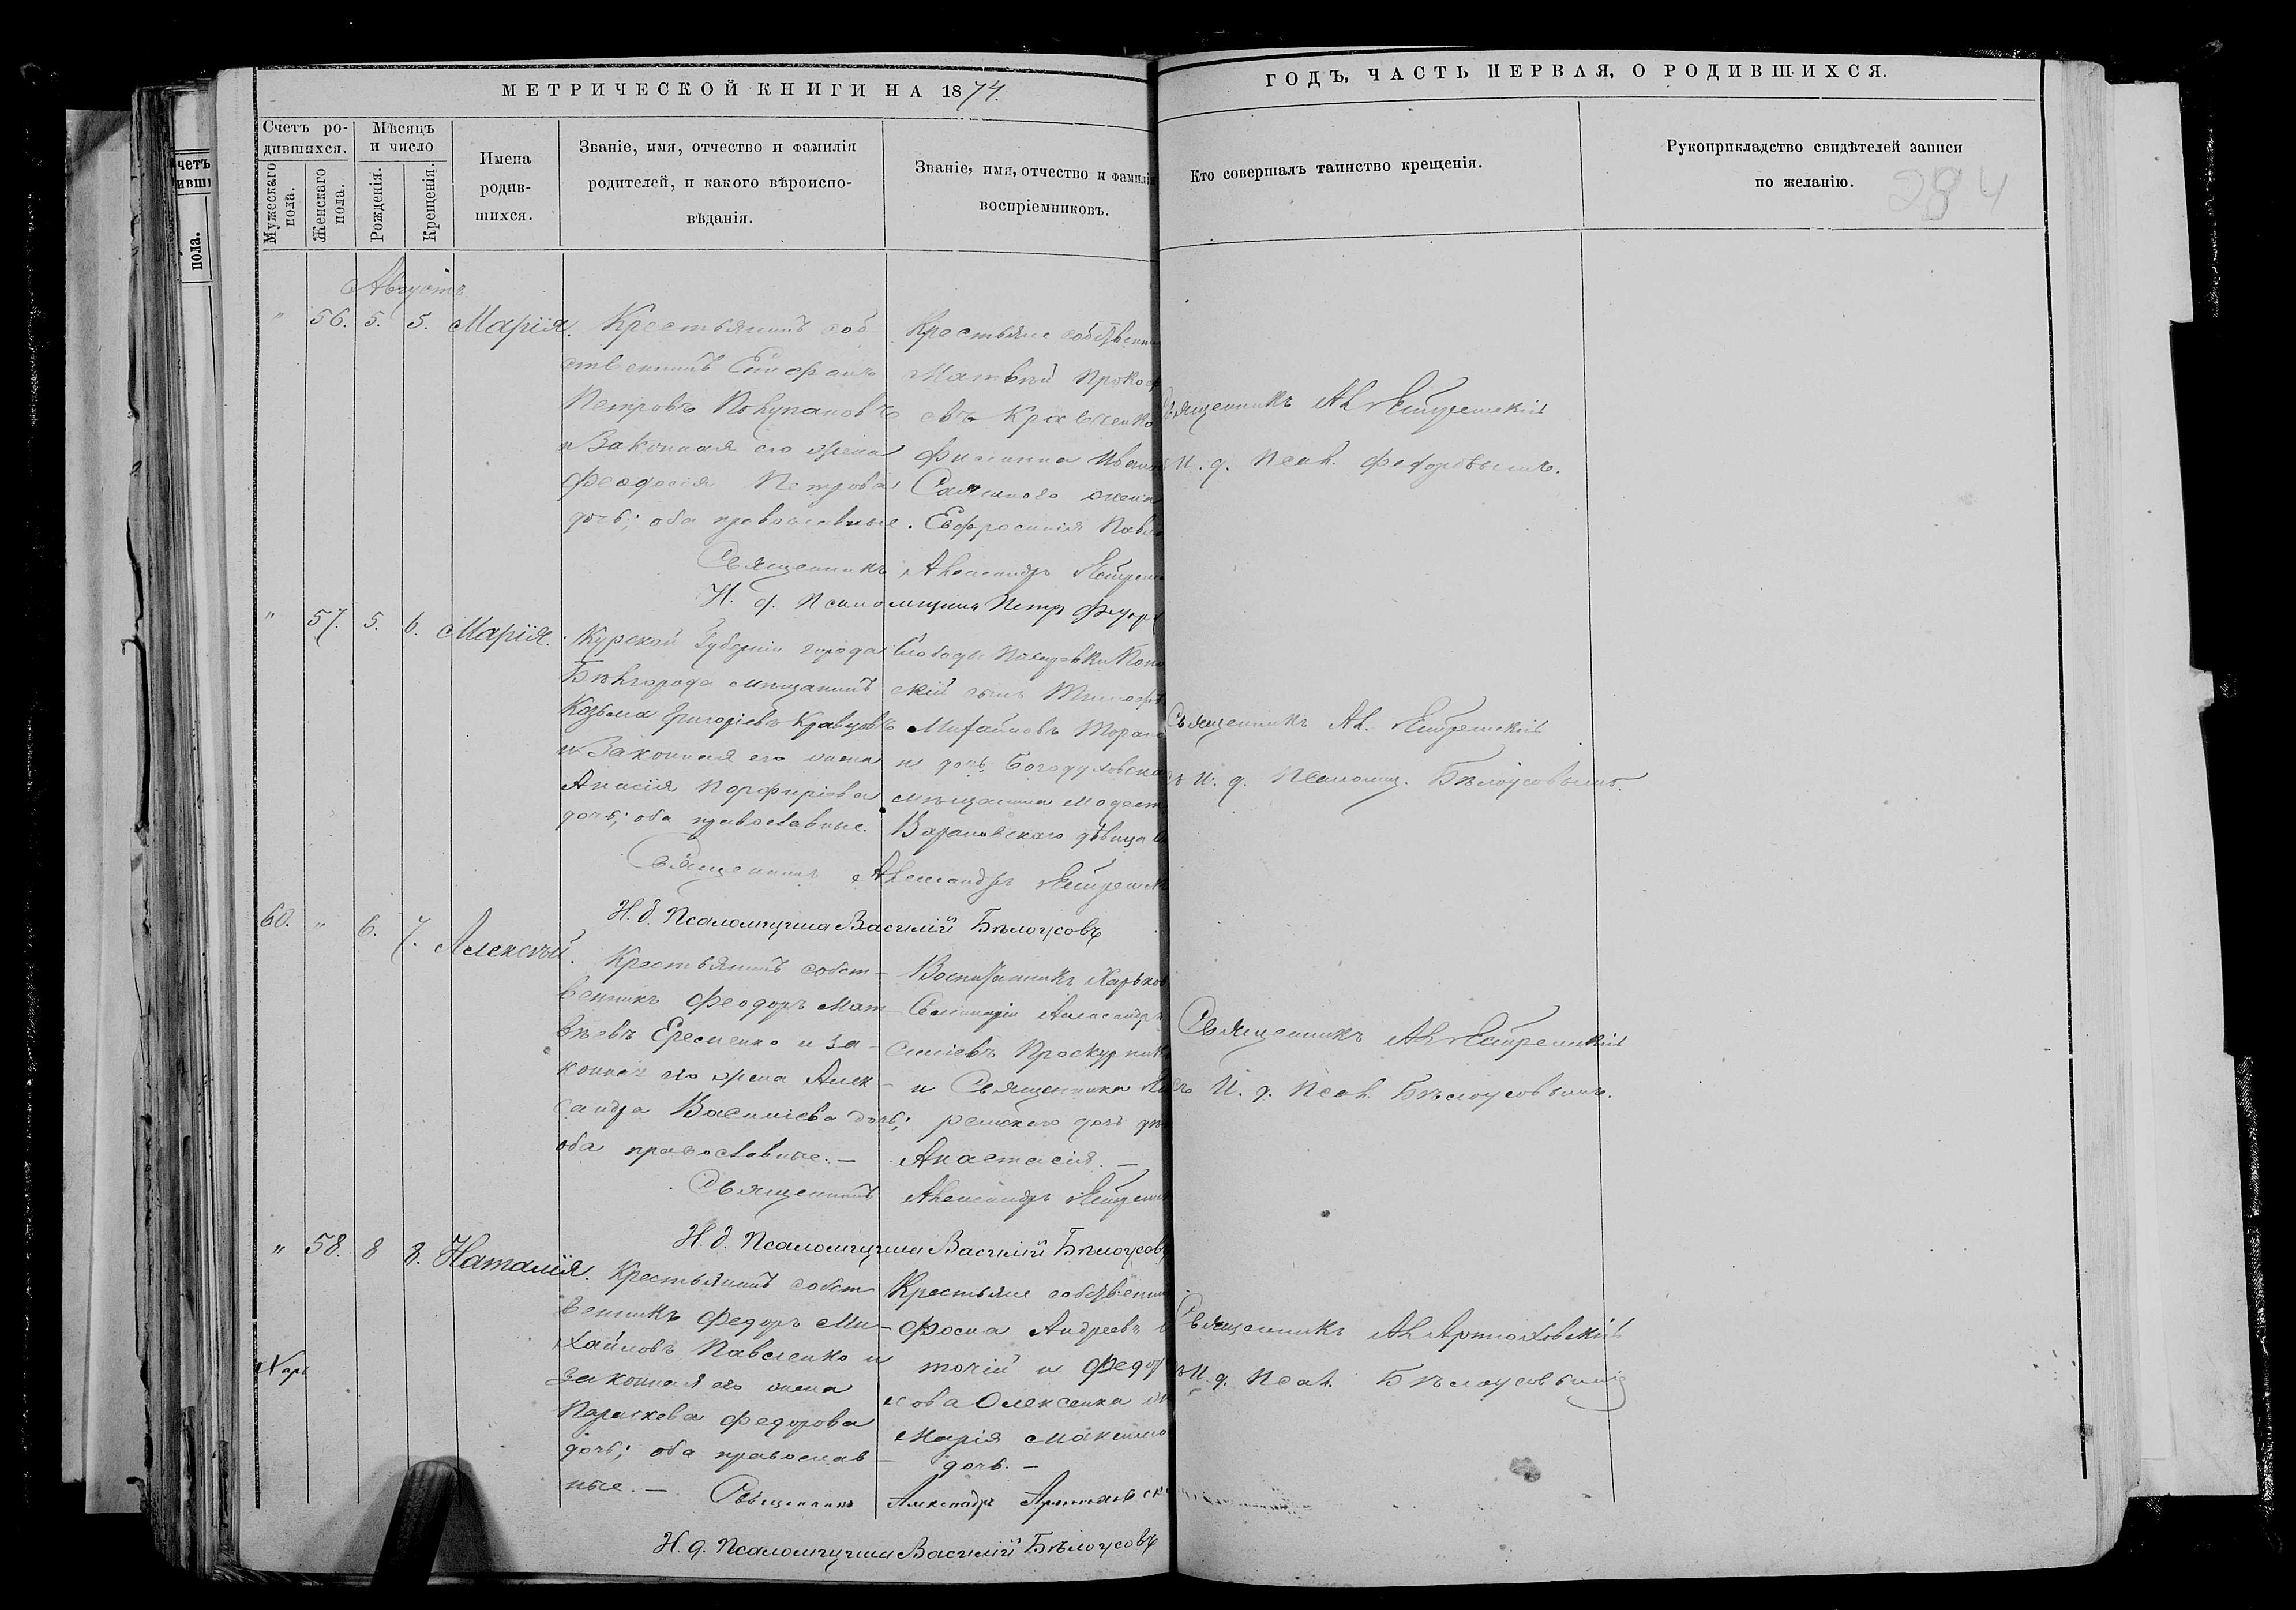 МЕТРИЧЕСКОЙ КНИГИ НА 1874.
ГОДЪ, ЧАСТЬ ПЕРВАЯ, О РОДИВШИХСЯ.
284
четъ
ивши
пола.
Счетъ ро-
дившихся.
Мужескаго
пола.
Женскаго
пола.
Мѣсяцъ
и число
Рожденія.
Крещенія.
Имена
родив-
шихся.
Званіе, имя, отчество и фамилія
родителей, и какого вѣроиспо-
вѣданія.
Званіе, имя, отчество и фамилія
воспріемниковъ.
Кто совершалъ таинство крещенія.
Рукоприкладство свидѣтелей записи
по желанію.
Августъ
" 56. 5. 5. Марія.
Крестьянинъ соб-
ственникъ Епифанъ
Петровъ
и законная его жена
Феодосія Петрова
дочь; оба православные.
Крестьяне собственни
Матвѣй Прокоф
евъ Кравченко
Филиппа Иванов
жена
Евфросинія Павло
Священникъ Ал.
И. д. Псал. Федоровымъ.
Священникъ Александръ
И. д. Псаломщика Петръ Федоро
" 57. 5. 6. Марія.
Курской Губерніи города
Бѣлгорода мѣщанинъ
Козьма Григоріевъ Кравцовъ
и законная его жена
Анисія Порфиріева
дочь; оба православные.
Слободы
скій сынъ Тимофей
Михайловъ
и дочь Богодуховска
мѣщанина Модест
Барановскаго дѣвица
Священникъ Ал.
И. д. Псаломщ. Бѣлоусовымъ.
Священникъ Александръ
И. д. Псаломщика Василій Бѣлоусовъ
60. " 6. 7. Алексѣй.
Крестьянинъ собст-
венникъ Феодоръ Мат-
вѣевъ Еременко и за-
конная его жена Алек-
сандра Василіева дочь;
оба православные. —
Воспитанникъ Харьков
Семинаріи Александръ
Проскурник
и Священника
ремскаго дочь дѣ
Анастасія. —
Священникъ Ал.
И. д. Псал. Бѣлоусовымъ.
Священникъ Александръ
И. д. Псаломщика Василій Бѣлоусовъ
" 58. 8 8. Наталія.
Крестьянинъ собст-
венникъ Федоръ Ми-
хайловъ Павленко и
законная его жена
Параскева Федорова
дочь; оба православ-
ные. —
Крестьяне собственни
Фома Андреевъ
и Федор
Олексенка
Марія Максимо
дочь. —
Священникъ Ал Артюховскій
И. д. Псал. Бѣлоусовымъ
Харь
Священникъ Александръ Артюховск
И. д. Псаломщика Василій Бѣлоусовъ